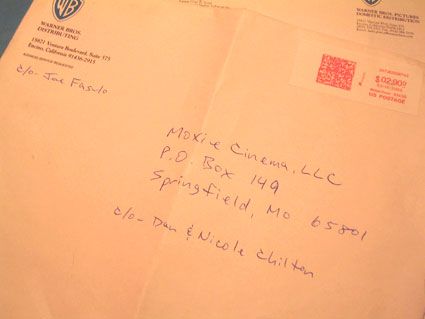 WB
WARNER BROS.
DISTRIBUTING
15821 Ventura Boulevard, Suite 575
Encino, California 91436-2915
c/o- Joe Fasulo
WARNER BROS. PICTURES
DOMESTIC DISTRIBUTION
$02.900
US POSTAGE
Moxie Cinema, LLC
P.O. Box 149
Springfield, Mo 65801
c/o- Dan & Nicole Chilton